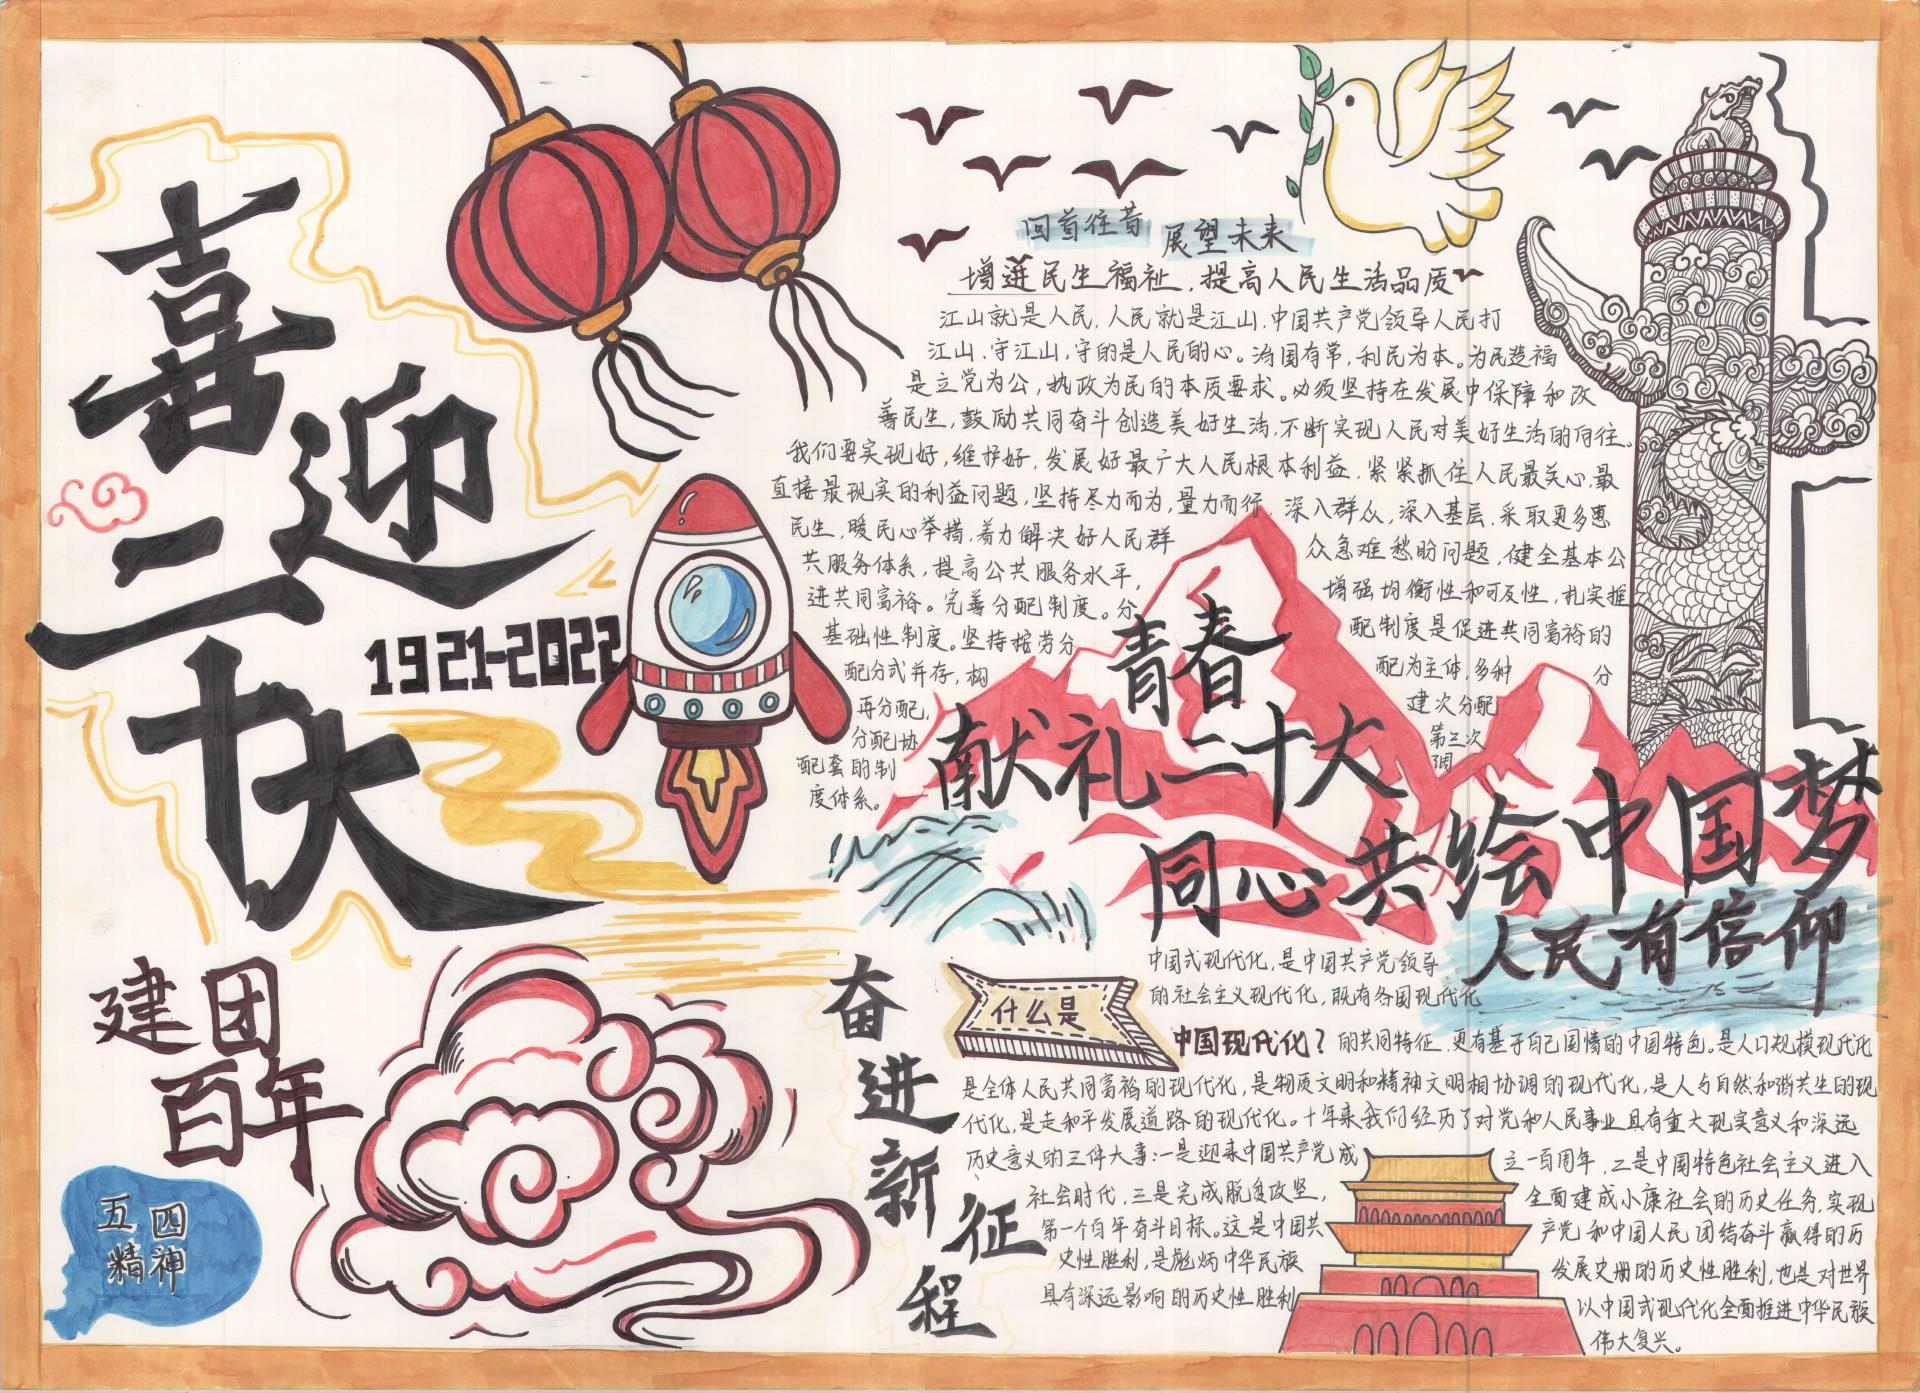 喜迎二十大
1921-2022
建团
百年
五四
精神
回首往昔
展望未来
增进民生福祉,提高人民生活品质
江山就是人民,人民就是江山,中国共产党领导人民打
江山、守江山,守的是人民的心。治国有常,利民为本。为民造福
是立党为公,执政为民的本质要求。必须坚持在发展中保障和改
善民生,鼓励共同奋斗创造美好生活,不断实现人民对美好生活的向往。
我们要实现好,维护好,发展好最广大人民根本利益,紧紧抓住人民最关心,最
直接最现实的利益问题,坚持尽力而为,量力而行,深入群众,深入基层,采取更多惠
民生,暖民心举措,着力解决好人民群
众急难愁盼问题,健全基本公
共服务体系,提高公共服务水平,
增强均衡性和可及性,扎实推
进共同富裕。完善分配制度。分
配制度是促进共同富裕的
基础性制度。坚持按劳分
配为主体,多种
分
配分式并存,构
建次分配
再分配,
第三次
分配协
调
配套的制
度体系。
青春
献礼二十大
同心共绘中国梦
人民有信仰
奋进新征程
什么是
中国现代化?
中国式现代化,是中国共产党领导
的社会主义现代化,既有各国现代化
的共同特征,更有基于自己国情的中国特色。是人口规模现代化
是全体人民共同富裕的现代化,是物质文明和精神文明相协调的现代化,是人与自然和谐共生的现
代化,是走和平发展道路的现代化。十年来我们经历了对党和人民事业具有重大现实意义和深远
历史意义的三件大事:一是迎来中国共产党成
立一百周年,二是中国特色社会主义进入
社会时代,三是完成脱贫攻坚,
全面建成小康社会的历史任务,实现
第一个百年奋斗目标。这是中国共
产党和中国人民团结奋斗赢得的历
史性胜利,是彪炳中华民族
发展史册的历史性胜利,也是对世界
具有深远影响的历史性胜利
以中国式现代化全面推进中华民族
伟大复兴。